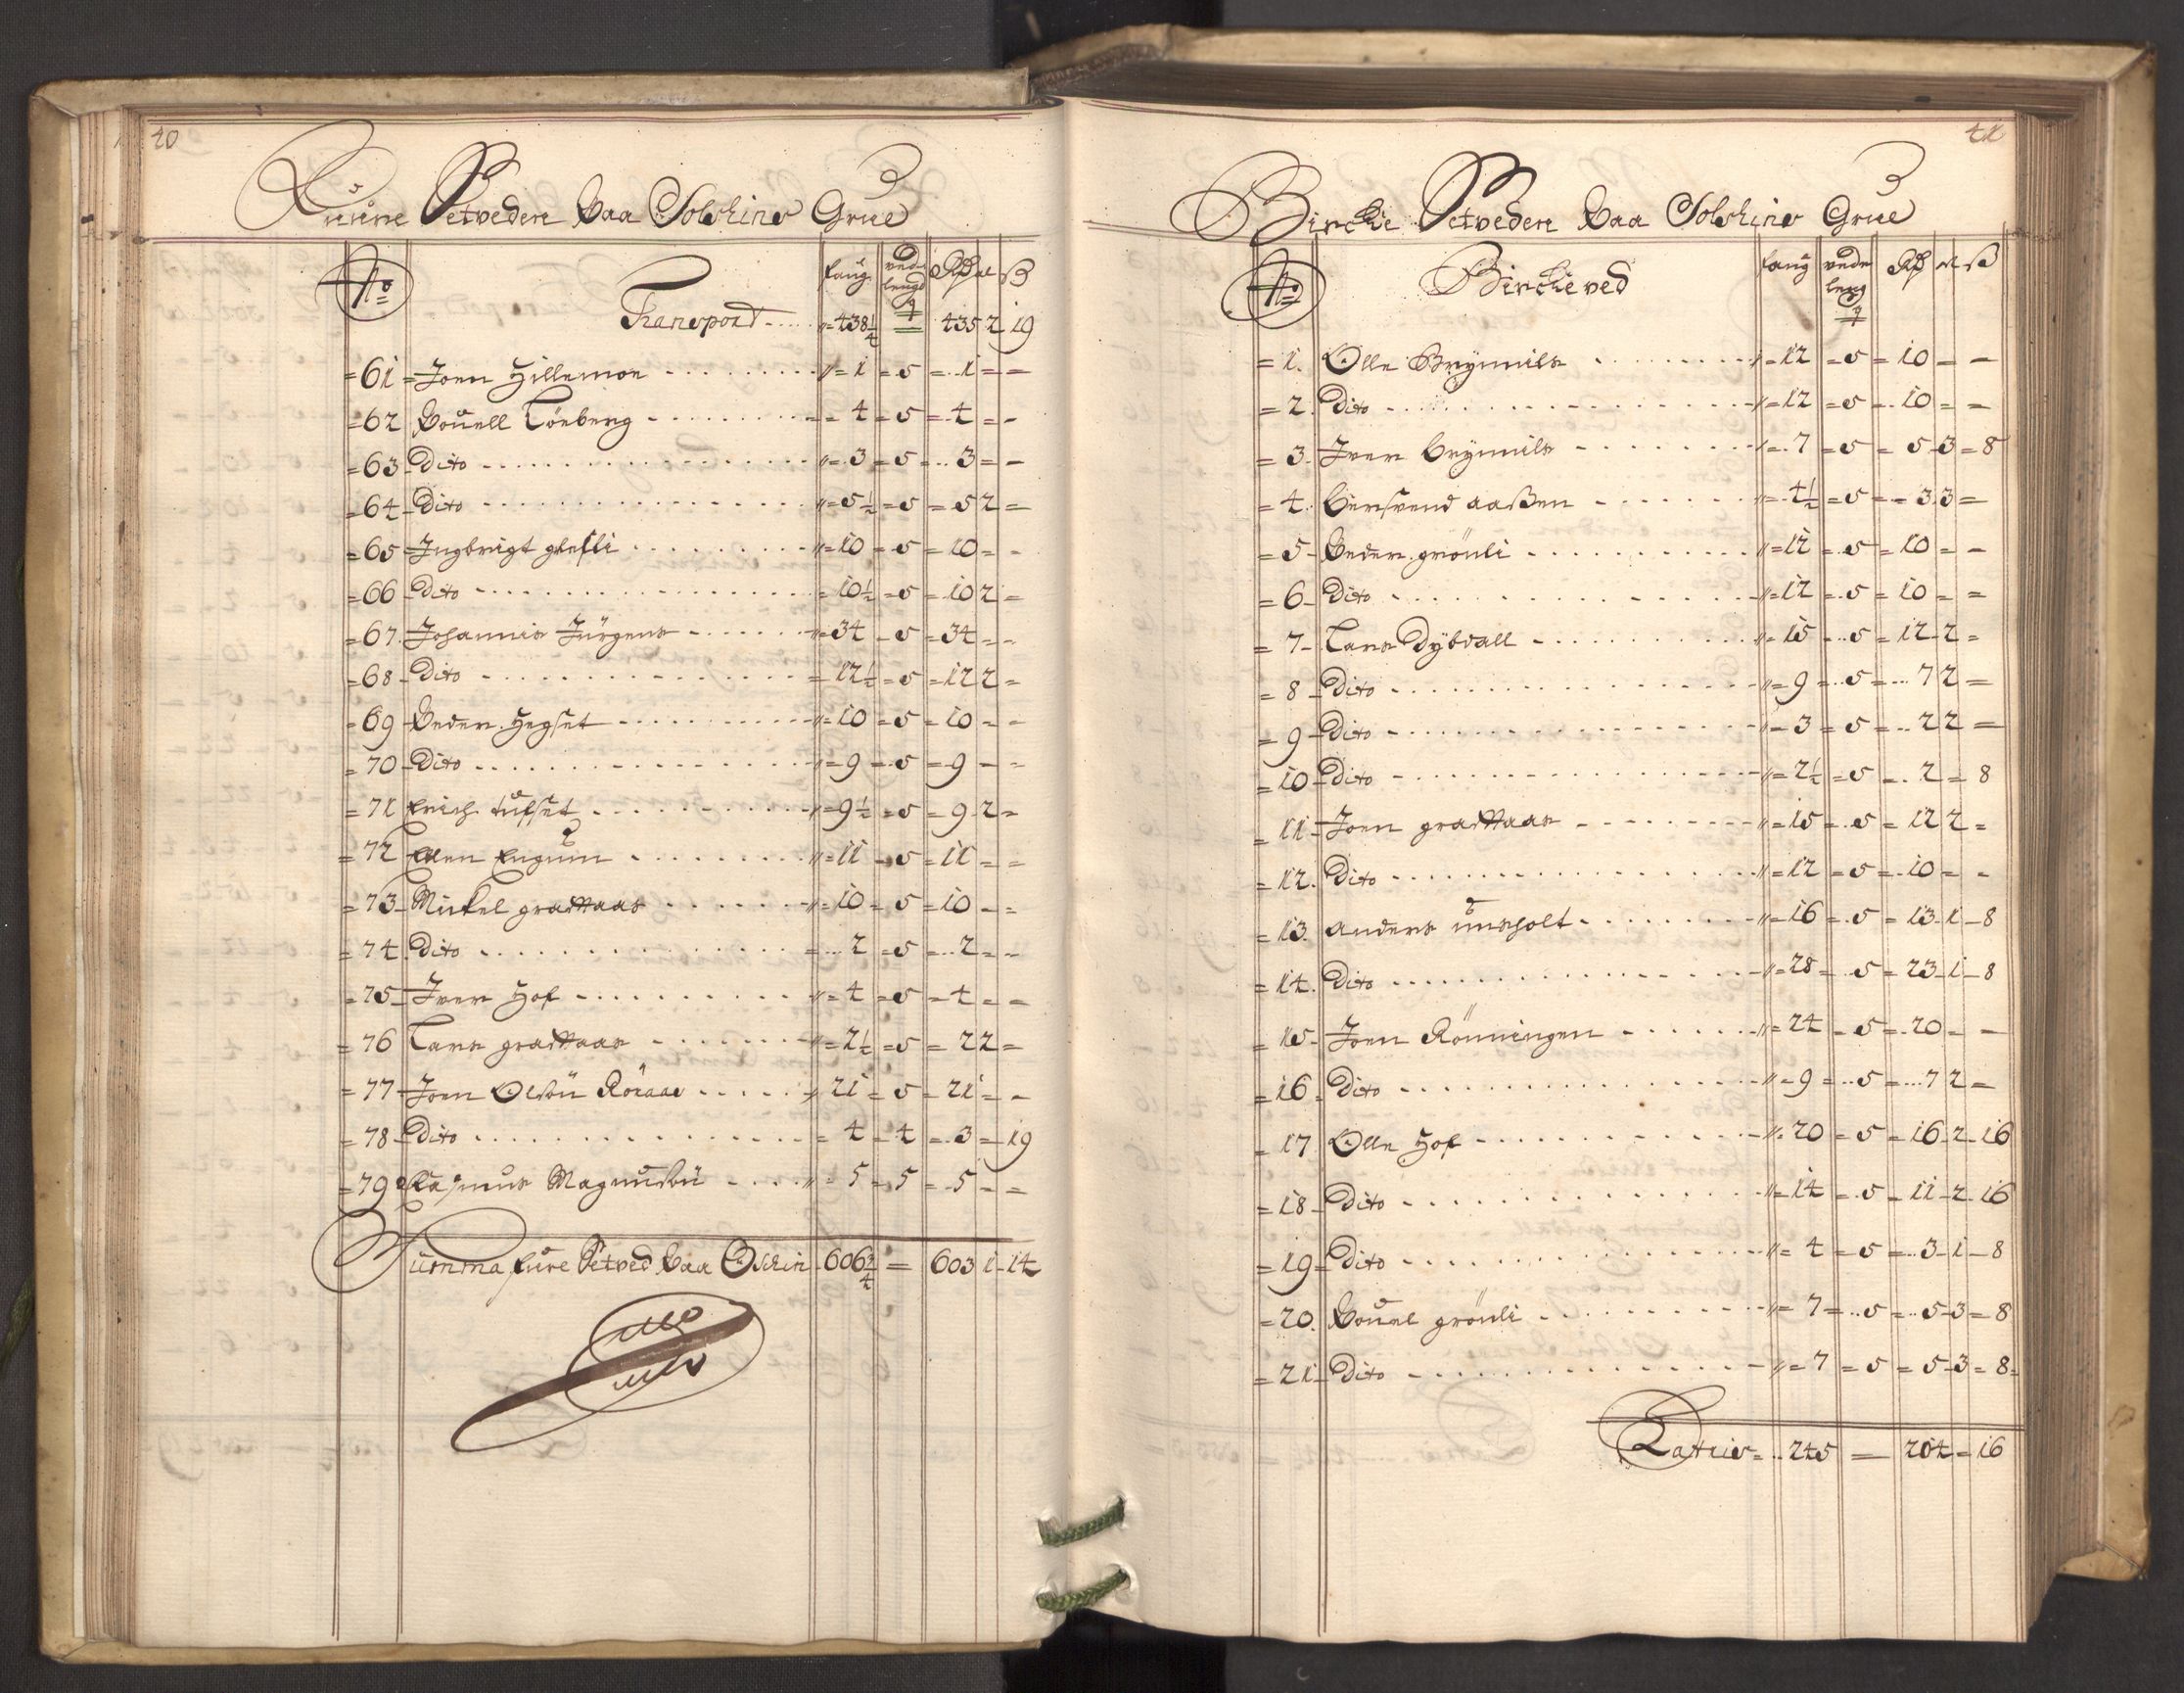 40
Fuurre Setveden Paa Solskins Grue
No
faug vede lengd q Rdr ort ß
Transport 438 1/4 435 2 19
61 Joen Hillemoe 1 5 1
62 Pouell Lönberg 4 5 4
63 Dito 3 5 3
64 Dito 5 1/2 5 5 2
65 Ingbrigt 10 5 10
66 Dito 10 1/2 5 10 2
67 Johannis Jürgens 34 5 34
68 Dito 12 1/2 5 12 2
69 Peder Hegset 10 5 10
70 Dito 9 5 9
71 Erich tufset 9 1/2 5 9 2
72 Ellen Engum 11 5 11
73 Mickel graattaas 10 5 10
74 Dito 2 5 2
75 Iver Hof 4 5 4
76 Lars graattaas 2 1/2 5 2 2
77 Joen Olsön Röraas 21 5 21
78 Dito 4 4 3 19
79 Rasmus Magnusön 5 5 5
Summa fure Setved Paa Oschin 606 3/4 603 1 14
41
Bircke Setveden Paa Solskins Grue
No
Bircke ved
faug vede leng q Rdr ort ß
1 Olle Brynnils 12 5 10
2 Dito 12 5 10
3 Iver Brynnils 7 5 5 3 8
4 Bersvend aaßen 4 1/2 5 3 3
5 Peder grönli 12 5 10
6 Dito 12 5 10
7 Lars Dybvall 15 5 12 2
8 Dito 9 5 7 2
9 Dito 3 5 2 2
10 Dito 2 1/2 5 2 8
11 Joen graattaas 15 5 12 2
12 Dito 12 5 10
13 anders unsholt 16 5 13 1 8
14 Dito 28 5 23 1 8
15 Joen Rönningen 24 5 20
16 Dito 9 5 7 2
17 Olle Hof 20 5 16 2 16
18 Dito 14 5 11 2 16
19 Dito 4 5 3 1 8
20 Pouel grönli 7 5 5 3 8
21 Dito 7 5 5 3 8
Latris 245 204 16